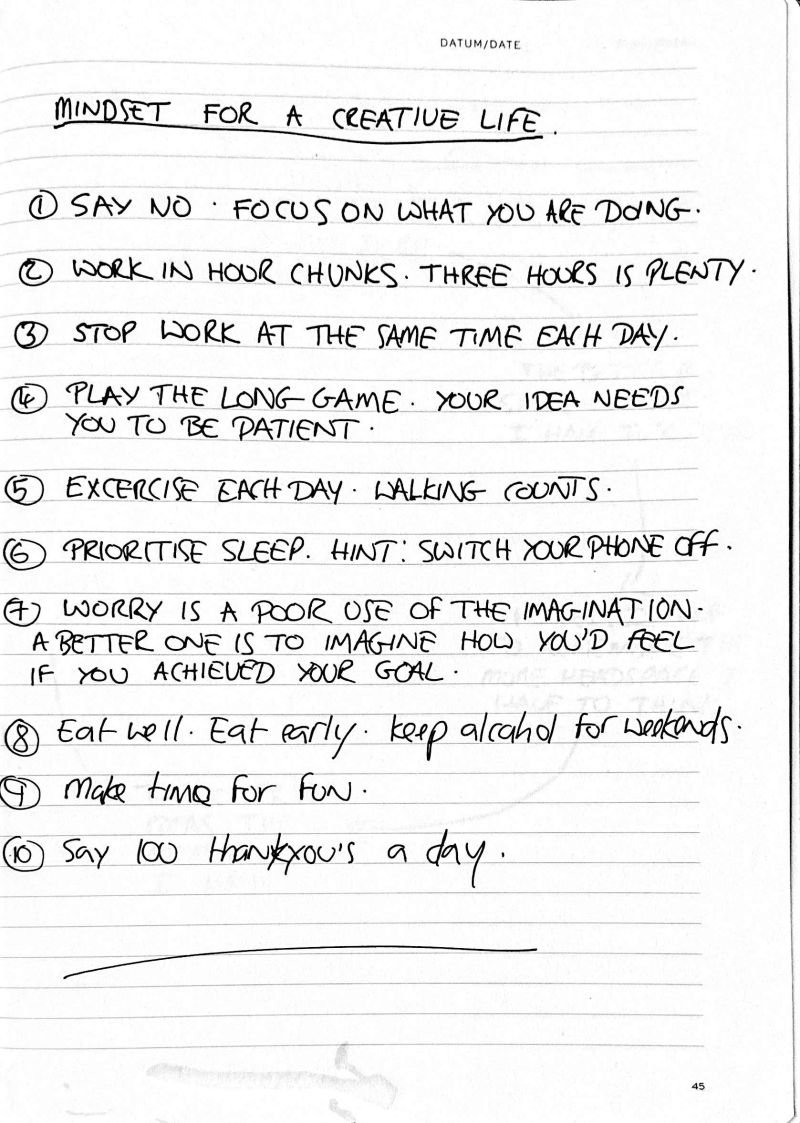 DATUM/DATE
MINDSET FOR A CREATIVE LIFE.
① SAY NO · FOCUS ON WHAT YOU ARE DOING.
② WORK IN HOUR CHUNKS. THREE HOURS IS PLENTY.
③ STOP WORK AT THE SAME TIME EACH DAY.
④ PLAY THE LONG GAME. YOUR IDEA NEEDS
YOU TO BE PATIENT.
⑤ EXCERCISE EACH DAY. WALKING COUNTS.
⑥ PRIORITISE SLEEP. HINT: SWITCH YOUR PHONE OFF.
⑦ WORRY IS A POOR USE OF THE IMAGINATION.
A BETTER ONE IS TO IMAGINE HOW YOU'D FEEL
IF YOU ACHIEVED YOUR GOAL.
⑧ Eat well. Eat early. keep alcahol for weekends.
⑨ Make time for fun.
⑩ Say 100 thankyou's a day.
45